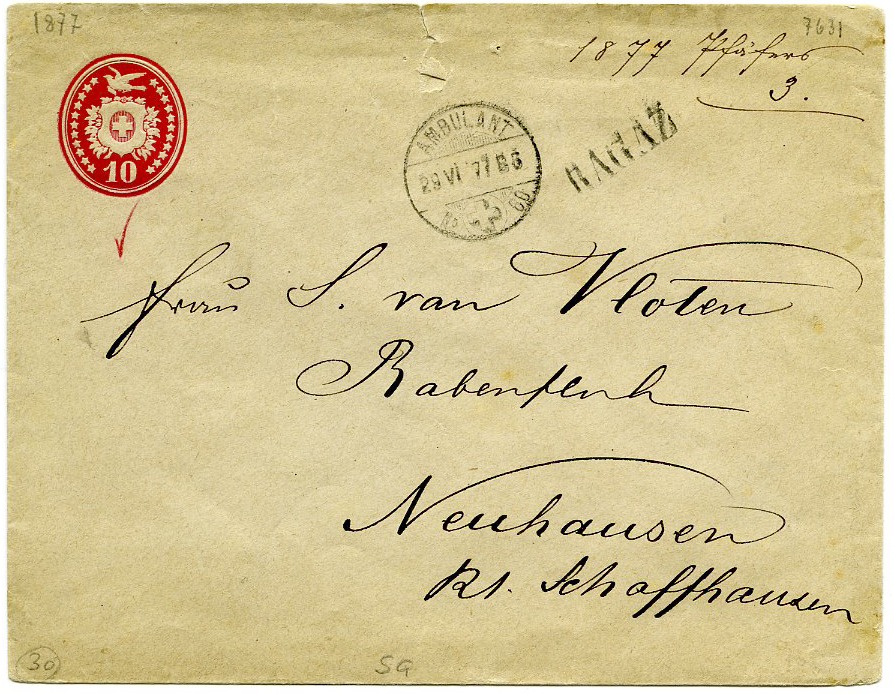 1877
7631
1877 Pfäfers
3.
10
AMBULANT
29 VI 77 B3
No 60
RAGAZ
Frau S. van Vloten
Neuhausen
Kt. Schaffhausen
30
SG